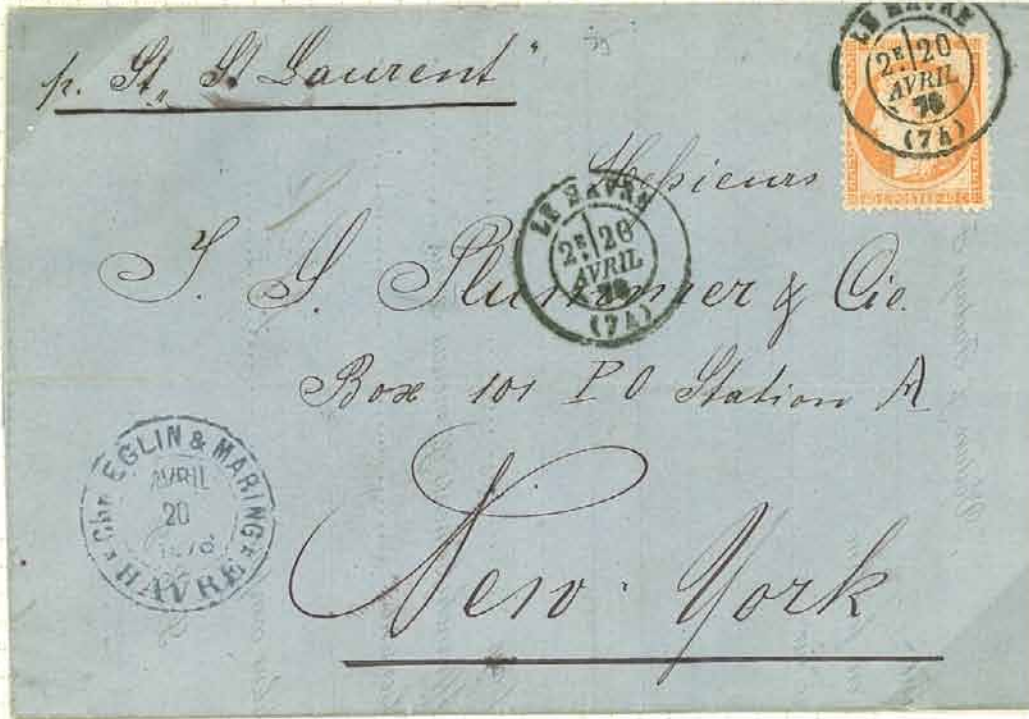 p. St. "St Laurent"
LE HAVRE
2E 20
AVRIL
76
(74)
Messieurs
LE HAVRE
2E 20
AVRIL
76
(74)
& Cie.
Box 101 P O Station A
New-York
*Chr EGLIN & MARING*
AVRIL
20
1876
HAVRE